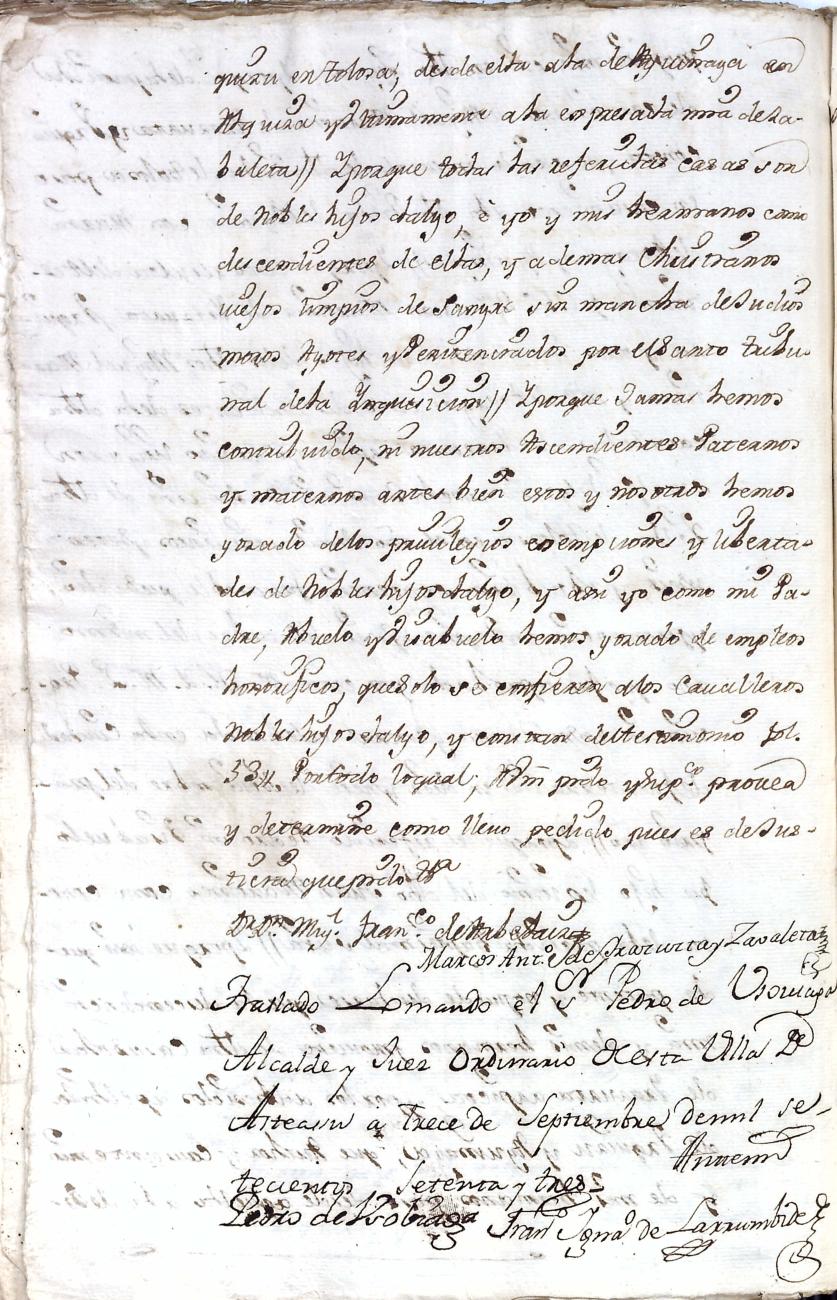 quizu en tolosa, desde esta a la de Aguinaga en
Alquiza y ultimamente ala expresada mia de Za-
baleta // Yporque todas las referidas casas son
de Nobles hijos dalgo, è yo y mis hermanos como
descendientes de ellas, y ademas Christianos
viejos limpios de sangre sin mancha de Judios
moros Agotes y Penitenciados por el Santo tribu-
nal dela Inquisicion // Yporque Jamas hemos
contribuido, ni nuestros Ascendientes Paternos
y maternos antes bien estos y nosotros hemos
gozado delos privilegios exempciones y liberta-
des de Nobles hijosdalgo, y asi yo como mi Pa-
dre, Abuelo y Visabuelo hemos gozado de empleos
honorificos, que solo se confieren alos Cavalleros
Nobles hijosdalgo, y constan del testimonio fol.
53 //. Portodo loqual; AVm pido y supco. provea
y determine como llevo pedido pues es de Jus-
ticia que pido Va
Dr. Dn. Migl. Franco. de
Marcos Anto. de Irazuzta y Zavaleta
Traslado Lo mando el Sr Pedro de
Alcalde y Juez Ordinario Desta Villa De
Asteasu à trece de Septiembre de mil se-
tecientos Setenta y tres
Antemi
Pedro de
Frano. Ignao. de Larrumbide